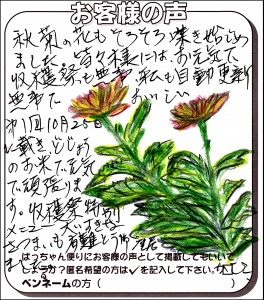 お客様の声
秋菊の花もそろそろ 咲き始じめ
ました。皆々様には、お元気で
収穫祭も無事 私も自動更新
無事で おいしい
第1回10月25日
に戴き
のお米で元気
で頑張りま
す。収穫祭特別
メニュー 大すきな
さつまいも 有難とう
はっちゃん便りにお客様の声として掲載してもいいで
しょうか?匿名希望の方は✓を記入して下さい。
ペンネームの方( )